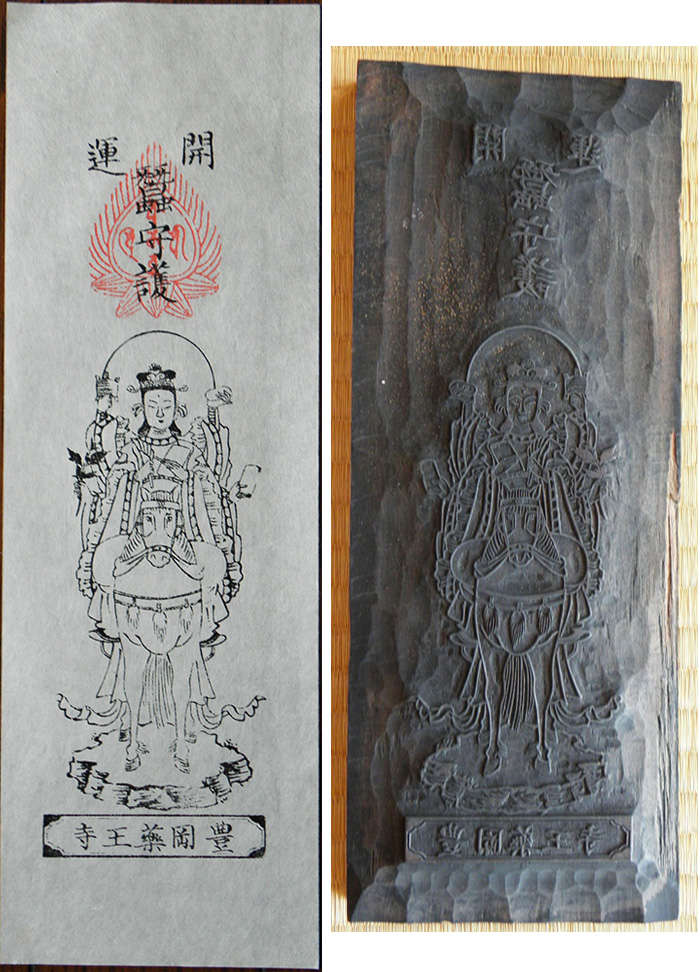 開運
蠶守護
豐岡藥王寺
開運
蠶守護
豐岡藥王寺